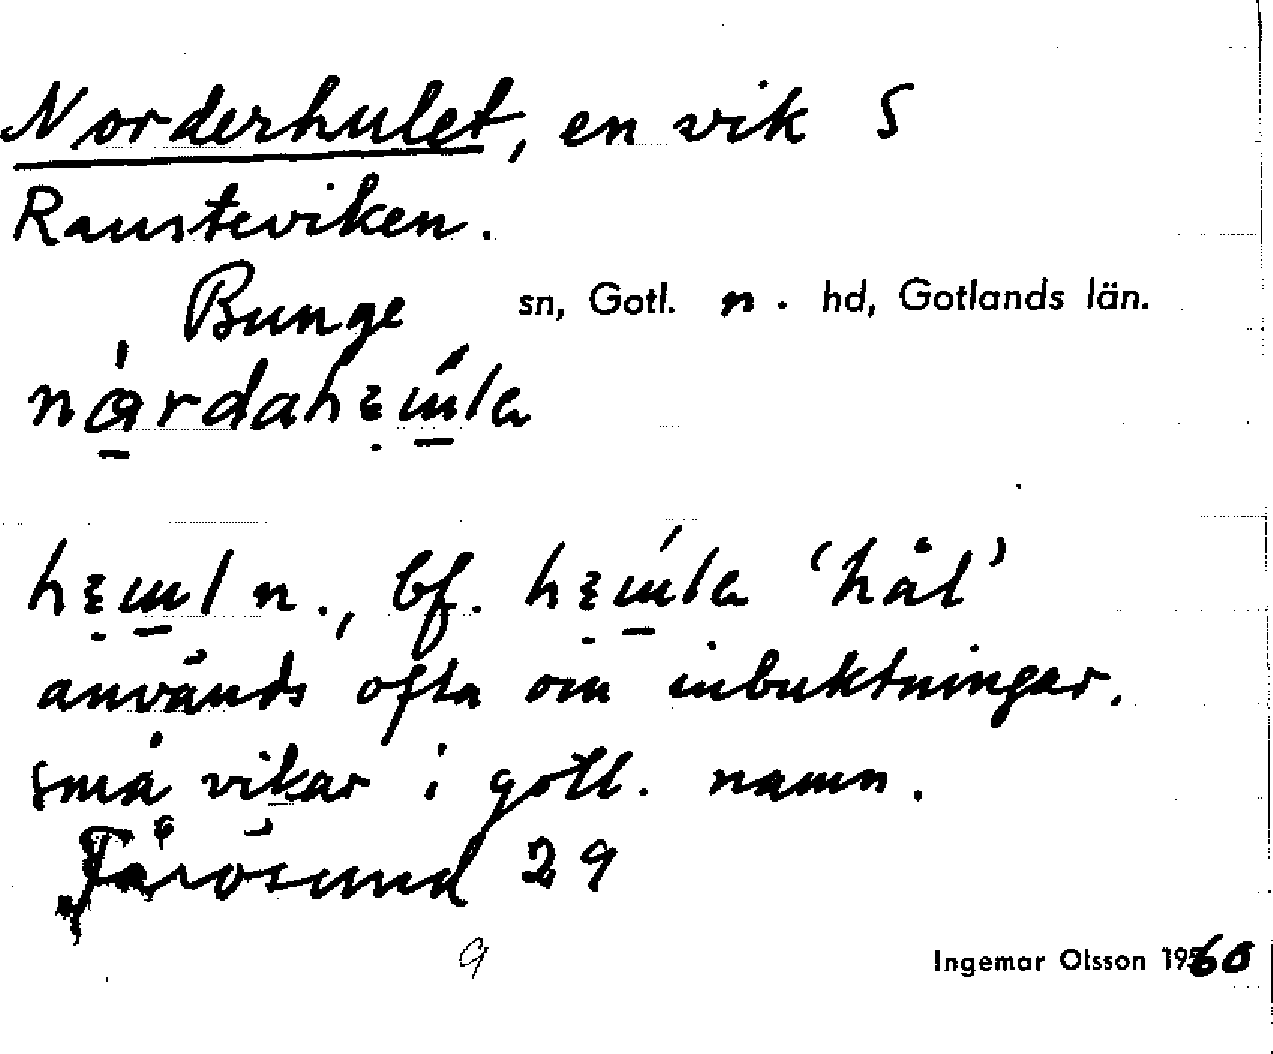 Norderhulet, en vik S
Rausteviken.
Bunge sn, Gotl. n. hd, Gotlands län.
'hål'
används ofta om inbuktningar.
små vikar i gotl. namn.
Fårösund 29
9
Ingemar Olsson 1960